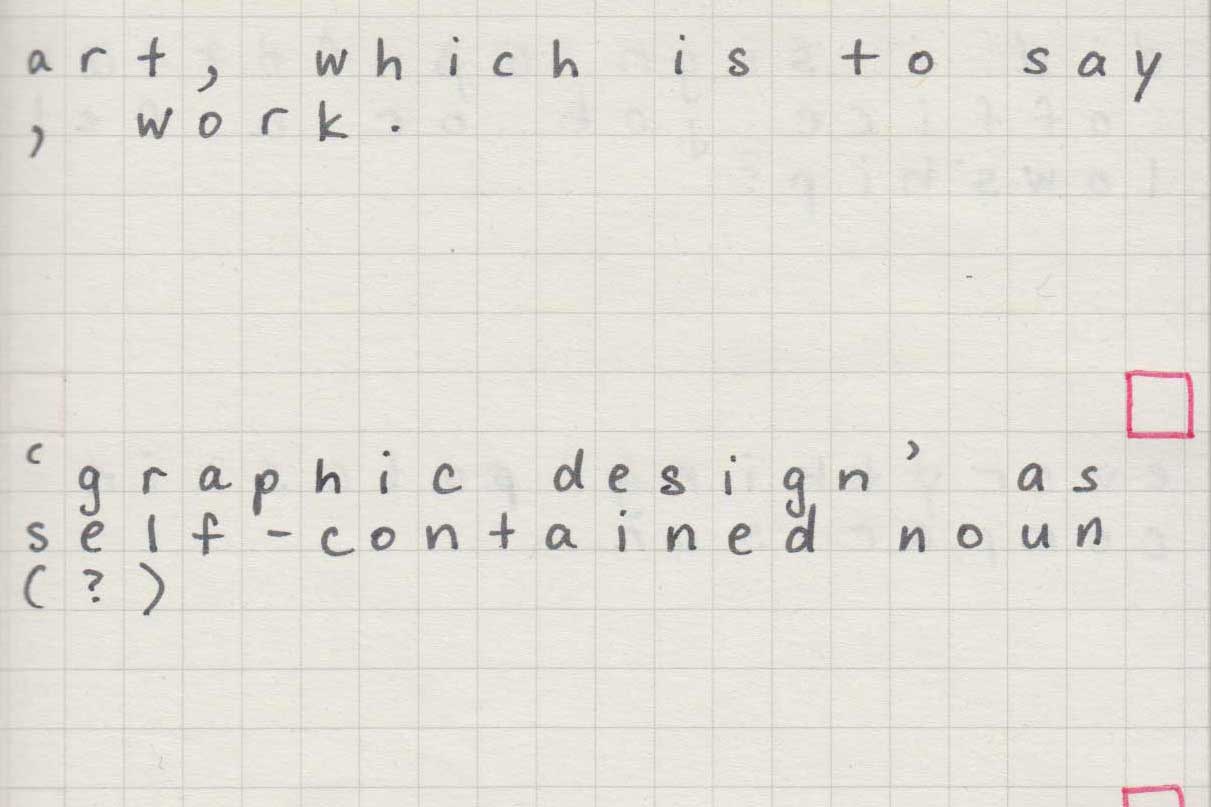 art, which is to say
, work.
‘graphic design’ as
self-contained noun
(?)